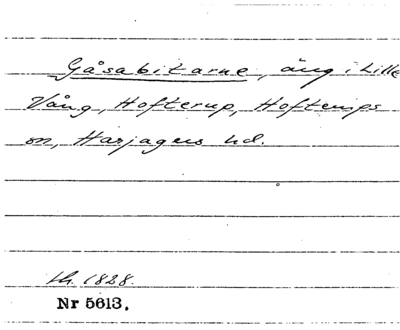 Gåsabitarne, äng i Lille
Vång, Hofterup, Hofterups
sn, Harjagers hd.
lh. 1828.
Nr 5613.